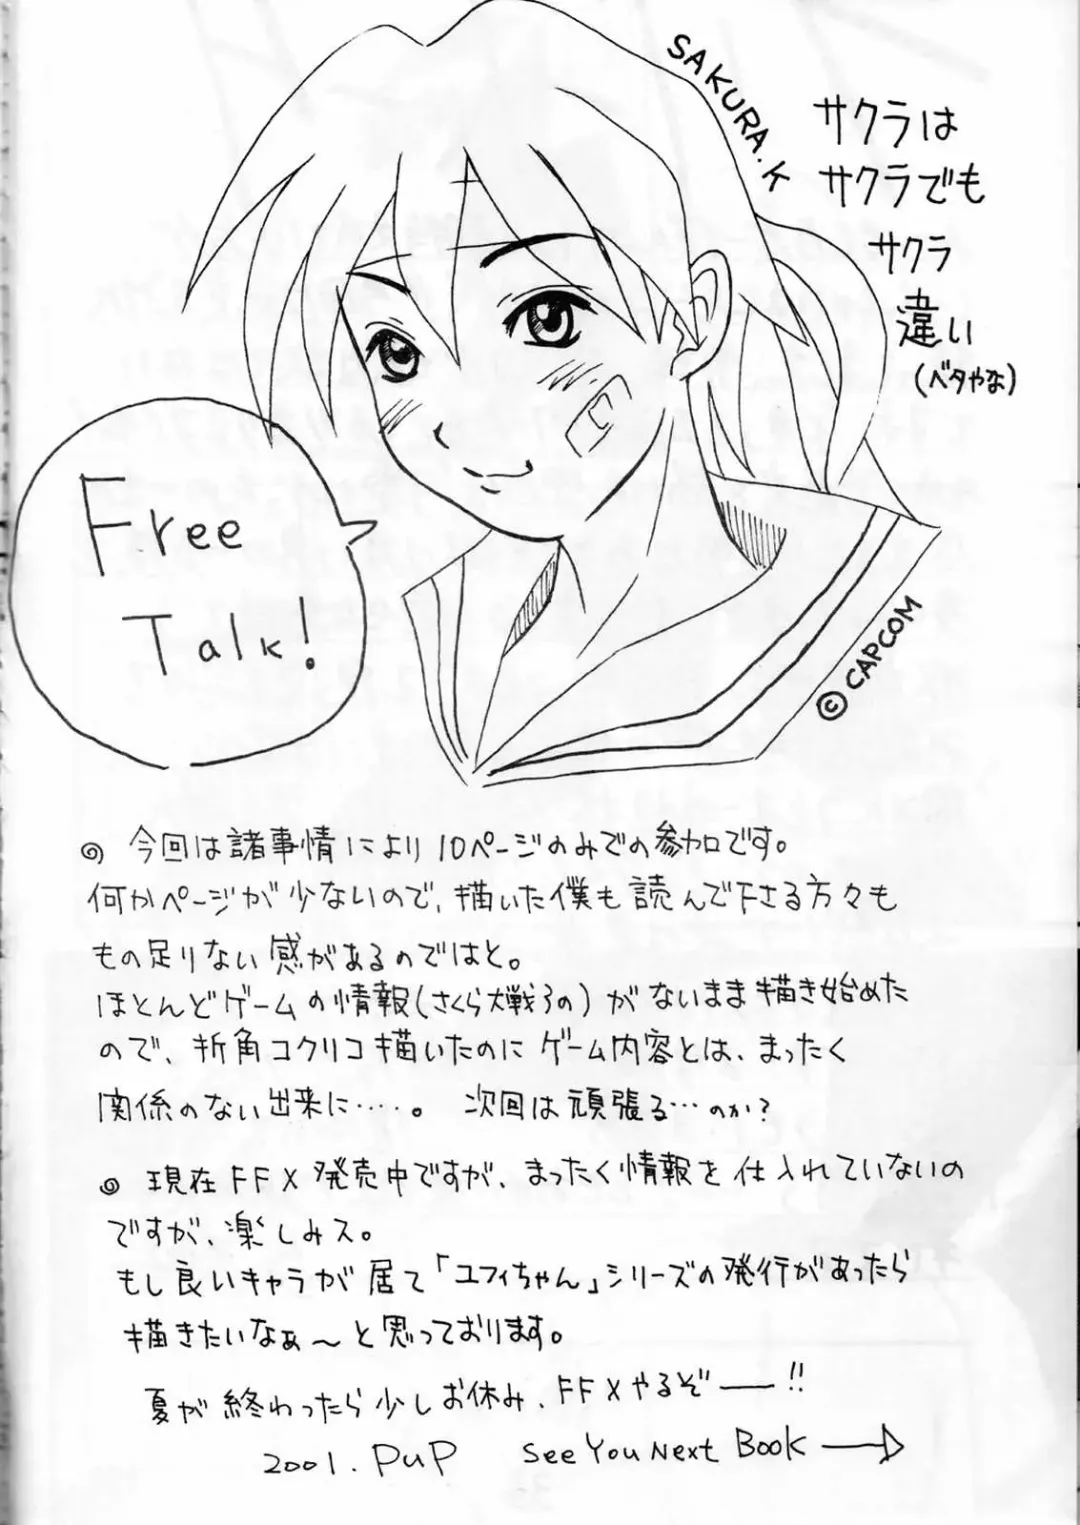 SAKURA.K
サクラは
サクラでも
サクラ
違い
(ベタやな)
Free
Talk!
© CAPCOM
◎ 今回は諸事情により10ページのみでの参加です。
何かページが少ないので、描いた僕も読んで下さる方々も
もの足りない感があるのではと。
ほとんどゲームの情報(さくら大戦3の)がないまま描き始めた
ので、折角コクリコ描いたのにゲーム内容とは、まったく
関係のない出来に……。 次回は頑張る…のか?
◎ 現在FFX発売中ですが、まったく情報を仕入れていないの
ですが、楽しみス。
もし良いキャラが居て「ユフィちゃん」シリーズの発行があったら
描きたいなぁ～と思っております。
夏が終わったら少しお休み、FFXやるぞ――!!
2001. PuP See You Next Book →